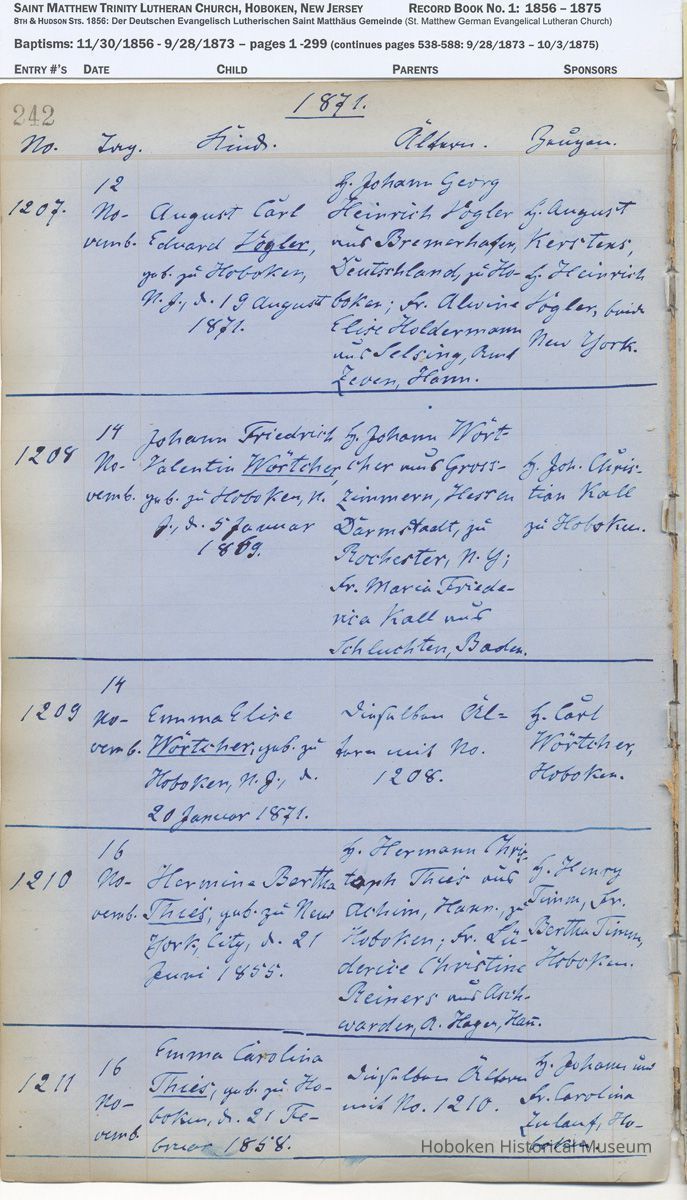 SAINT MATTHEW TRINITY LUTHERAN CHURCH, HOBOKEN, NEW JERSEY RECORD BOOK NO. 1: 1856 – 1875
8TH & HUDSON STS. 1856: Der Deutschen Evangelisch Lutherischen Saint Matthäus Gemeinde (St. Matthew German Evangelical Lutheran Church)
Baptisms: 11/30/1856 - 9/28/1873 – pages 1 -299 (continues pages 538-588: 9/28/1873 – 10/3/1875)
ENTRY #'S DATE CHILD PARENTS SPONSORS
242
1871.
No. Tag. Kind. Ältern. Zeugen.
1207.
12
No-
vemb.
August Carl
Eduard Vögler,
geb. zu Hoboken,
N. J., d. 19 August
1871.
H. Johann Georg
Heinrich Vögler
aus Bremerhafen,
Deutschland, zu Ho-
boken; Fr. Alwine
Elise Holdermann
aus Selsing, Amt
Zeven, Hann.
H. August
Kerstens,
H. Heinrich
Vögler, beide
New York.
1208
14
No-
vemb.
Johann Friedrich
Valentin Wörtcher,
geb. zu Hoboken, N.
J., d. 5 Januar
1869.
H. Johann Wört-
cher aus Gross-
zimmern, Hessen
Darmstadt, zu
Rochester, N. Y.;
Fr. Maria Friede-
rica Kall aus
Schluchten, Baden.
H. Joh. Chris-
tian Kall
zu Hoboken.
1209
14
No-
vemb.
Emma Elise
Wörtcher, geb. zu
Hoboken, N. J., d.
20 Januar 1871.
Dieselben Äl-
tern mit No.
1208.
H. Carl
Wörtcher,
Hoboken.
1210
16
No-
vemb.
Hermine Bertha
Thies, geb. zu New
York, City, d. 21
Juni 1855.
H. Hermann Chris-
toph Thies aus
Achim, Hann., zu
Hoboken; Fr. Lü-
derice Christine
Reiners aus Asch-
warden, A. Hagen, Han.
H. Henry
Timm, Fr.
Bertha Timm,
Hoboken.
1211
16
No-
vemb.
Emma Carolina
Thies, geb. zu Ho-
boken, d. 21 Fe-
bruar 1858.
Dieselben Ältern
mit No. 1210.
H. Johann und
Fr. Carolina
Zulauf, Ho-
boken.
Hoboken Historical Museum